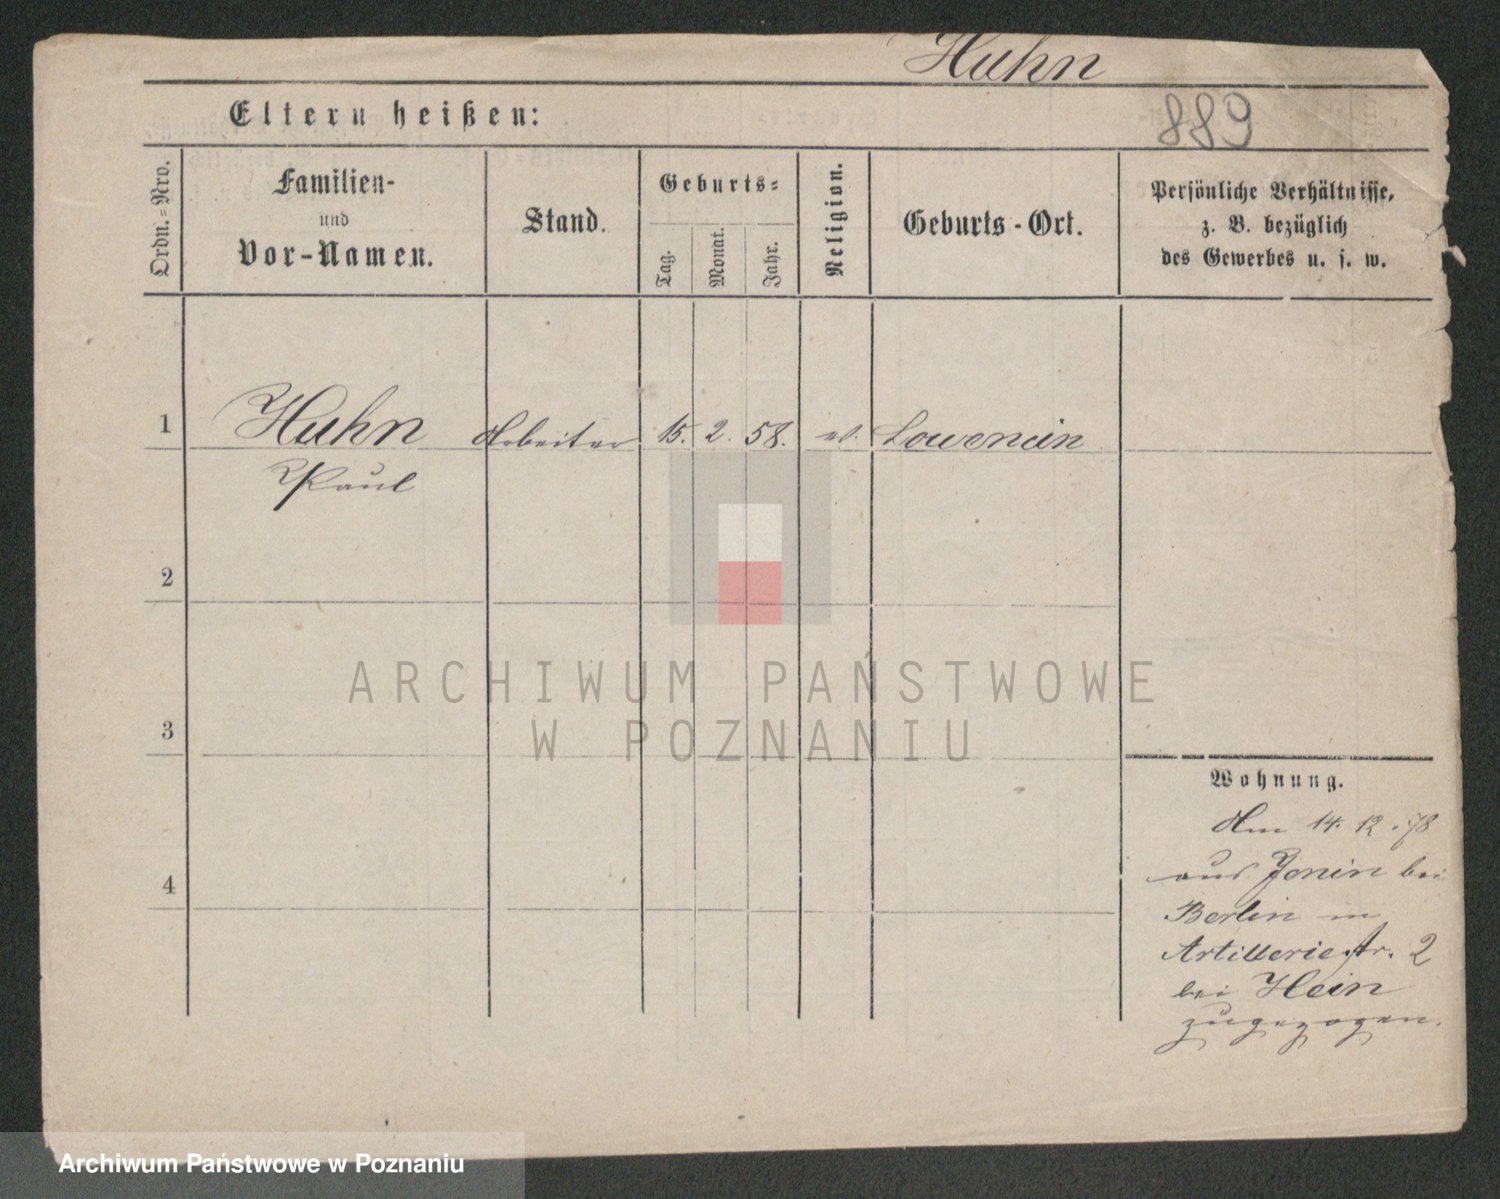 Huhn
889
Eltern heißen:
Ordn.-Nro.
Familien-
und
Vor-Namen.
Stand.
Geburts-
Tag.
Monat.
Jahr.
Religion.
Geburts-Ort.
Persönliche Verhältnisse,
z. B. bezüglich
des Gewerbes u. s. w.
1
Huhn Arbeiter 15. 2. 58. ev. Lowencin
Paul
2
3
4
Wohnung.
Am 14. 12. 78
aus Jenin bei
Berlin in
Artilleriestr. 2
bei Hein
zugezogen.
ARCHIWUM PAŃSTWOWE
W POZNANIU
Archiwum Państwowe w Poznaniu